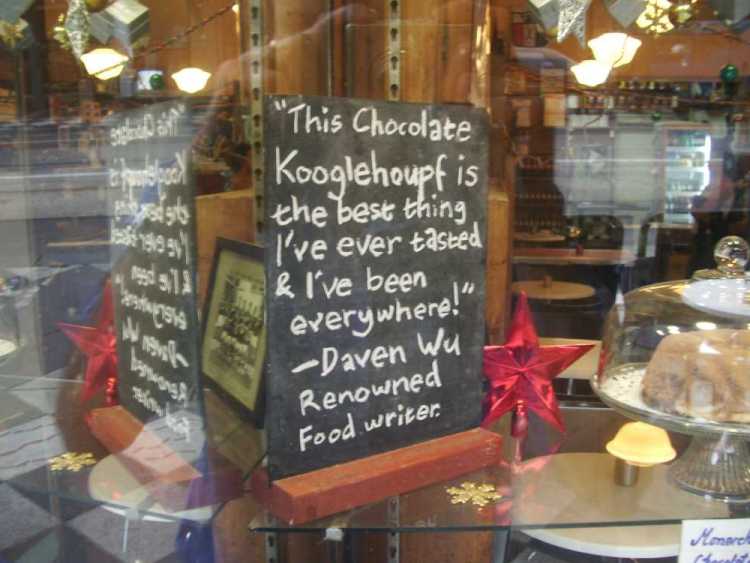 "This Chocolate
Kooglehoupf is
the best thing
I've ever tasted
& I've been
everywhere!"
—Daven Wu
Renowned
Food writer.
Monarch
Chocolate